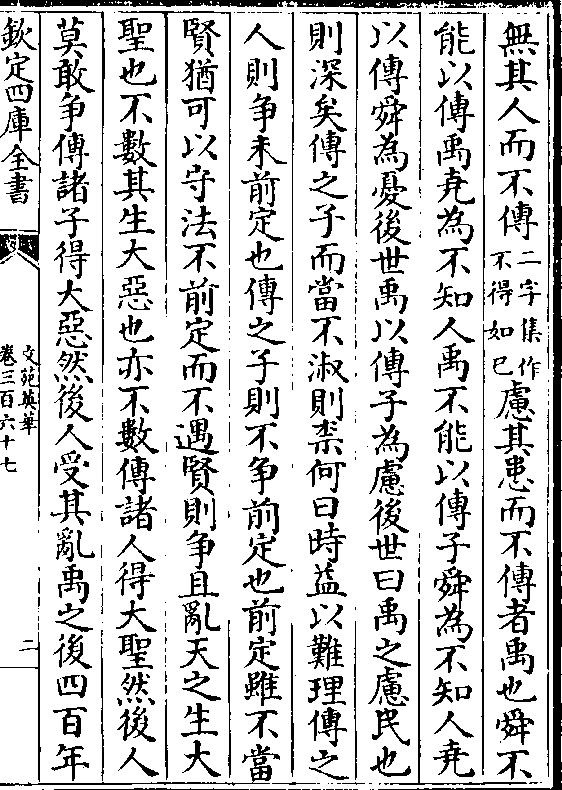 無其人而不傳二字集作不得如已慮其患而不傳者禹也舜不
能以傳禹堯為不知人禹不能以傳子舜為不知人堯
以傳舜為憂後世禹以傳子為慮後世曰禹之慮民也
則深矣傳之子而當不淑則柰何曰時益以難理傳之
人則争未前定也傳之子則不争前定也前定雖不當
賢猶可以守法不前定而不遇賢則争且亂天之生大
聖也不數其生大惡也亦不數傳諸人得大聖然後人
莫敢争傳諸子得大惡然後人受其亂禹之後四百年
欽定四庫全書
文苑英華
卷三百六十七
二